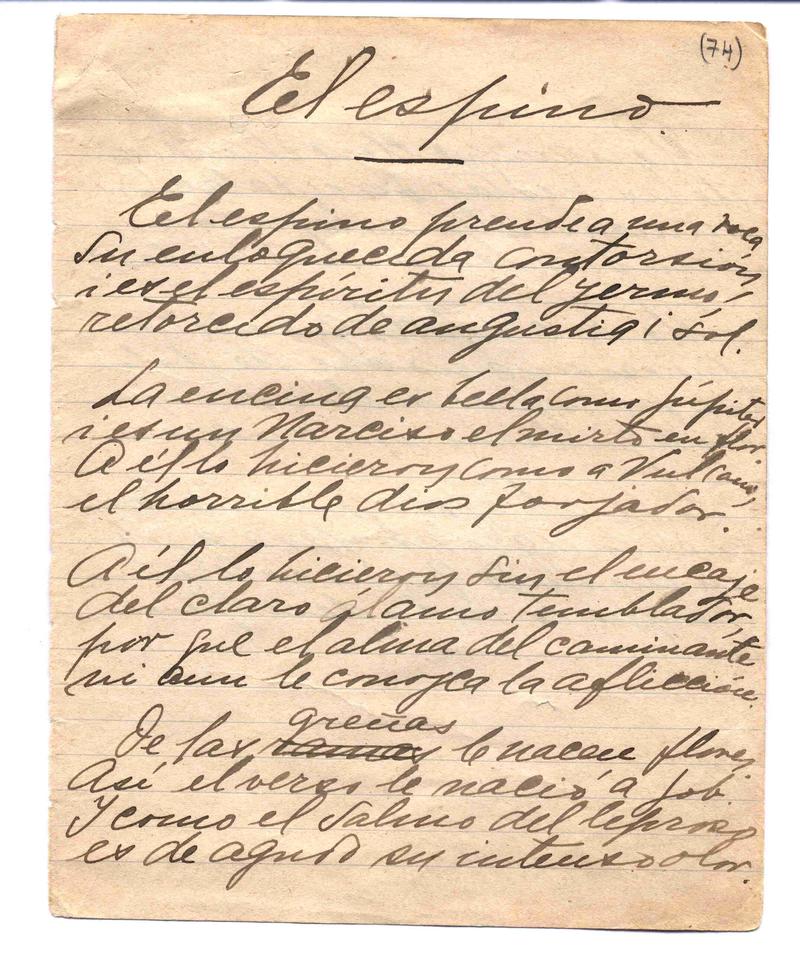 (74)
El espino.
El espino prende a una roca
su enloquecida contorsión,
i es el espíritu del yermo,
retorcido de angustia i sol.
La encina es bella como Júpiter
i es un Narciso el mirto en flor.
A él lo hicieron como a Vulcano,
el horrible dios forjador.
A él lo hicieron sin el encaje
del claro álamo temblador,
por que el alma del caminante
ni aun le conozca la aflicción.
greñas
De las ramas le nacen flores
Así el verso le nació a Job.
Y como el salmo del leproso
es de agudo su intenso olor.